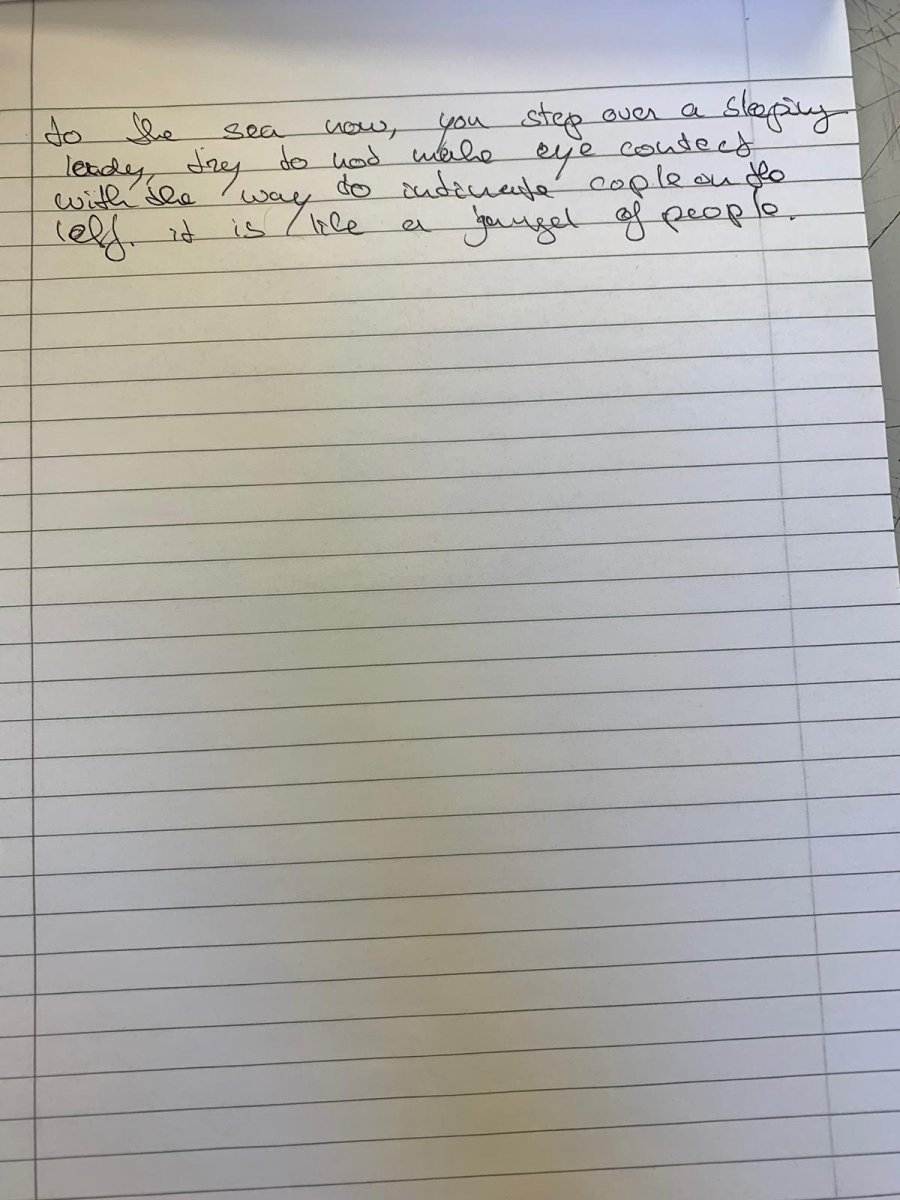 to the sea now, you step over a sleeping
leady, try to not make eye contect
with the way to intimate cople on the
left. it is like a jungel of people.